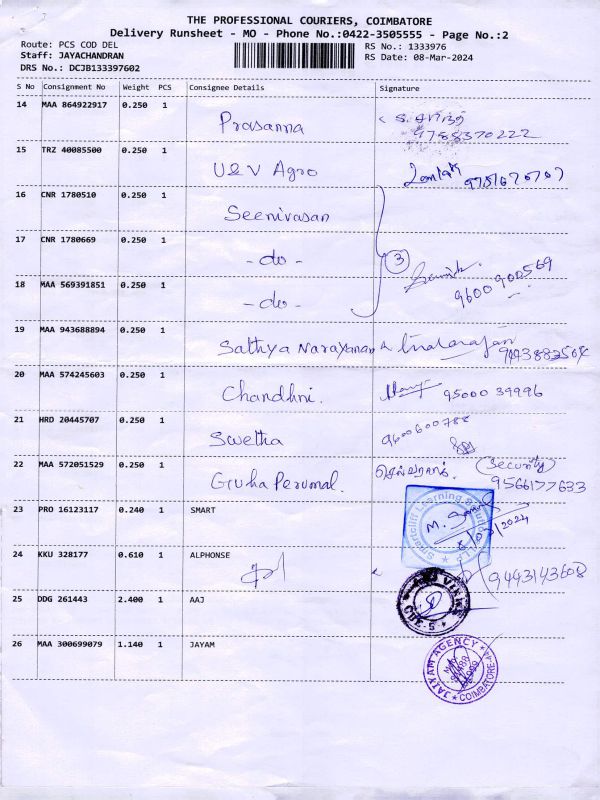 THE PROFESSIONAL COURIERS, COIMBATORE
Delivery Runsheet - MO - Phone No.:0422-3505555 - Page No.:2
Route: PCS COD DEL
RS No.: 1333976
Staff: JAYACHANDRAN
RS Date: 08-Mar-2024
DRS No.: DCJB133397602
S No Consignment No Weight PCS Consignee Details Signature
14 MAA 864922917 0.250 1 Prasanna
9788370222
15 TRZ 40085500 0.250 1 U&V Agro
16 CNR 1780510 0.250 1 Seenivasan
17 CNR 1780669 0.250 1 - do - 3
9600900569
18 MAA 569391851 0.250 1 - do -
19 MAA 943688894 0.250 1 Sathya Narayanan
20 MAA 574245603 0.250 1 Chandhni. 95000 39996
21 HRD 20445707 0.250 1 Swetha 9600600788
22 MAA 572051529 0.250 1 Guha Perumal. செல்வராஜ் (Security)
9566177633
23 PRO 16123117 0.240 1 SMART
Smartcliff Learning Solutions LLP
24 KKU 328177 0.610 1 ALPHONSE
9443143608
25 DDG 261443 2.400 1 AAJ
26 MAA 300699079 1.140 1 JAYAM
AGENCY
COIMBATORE